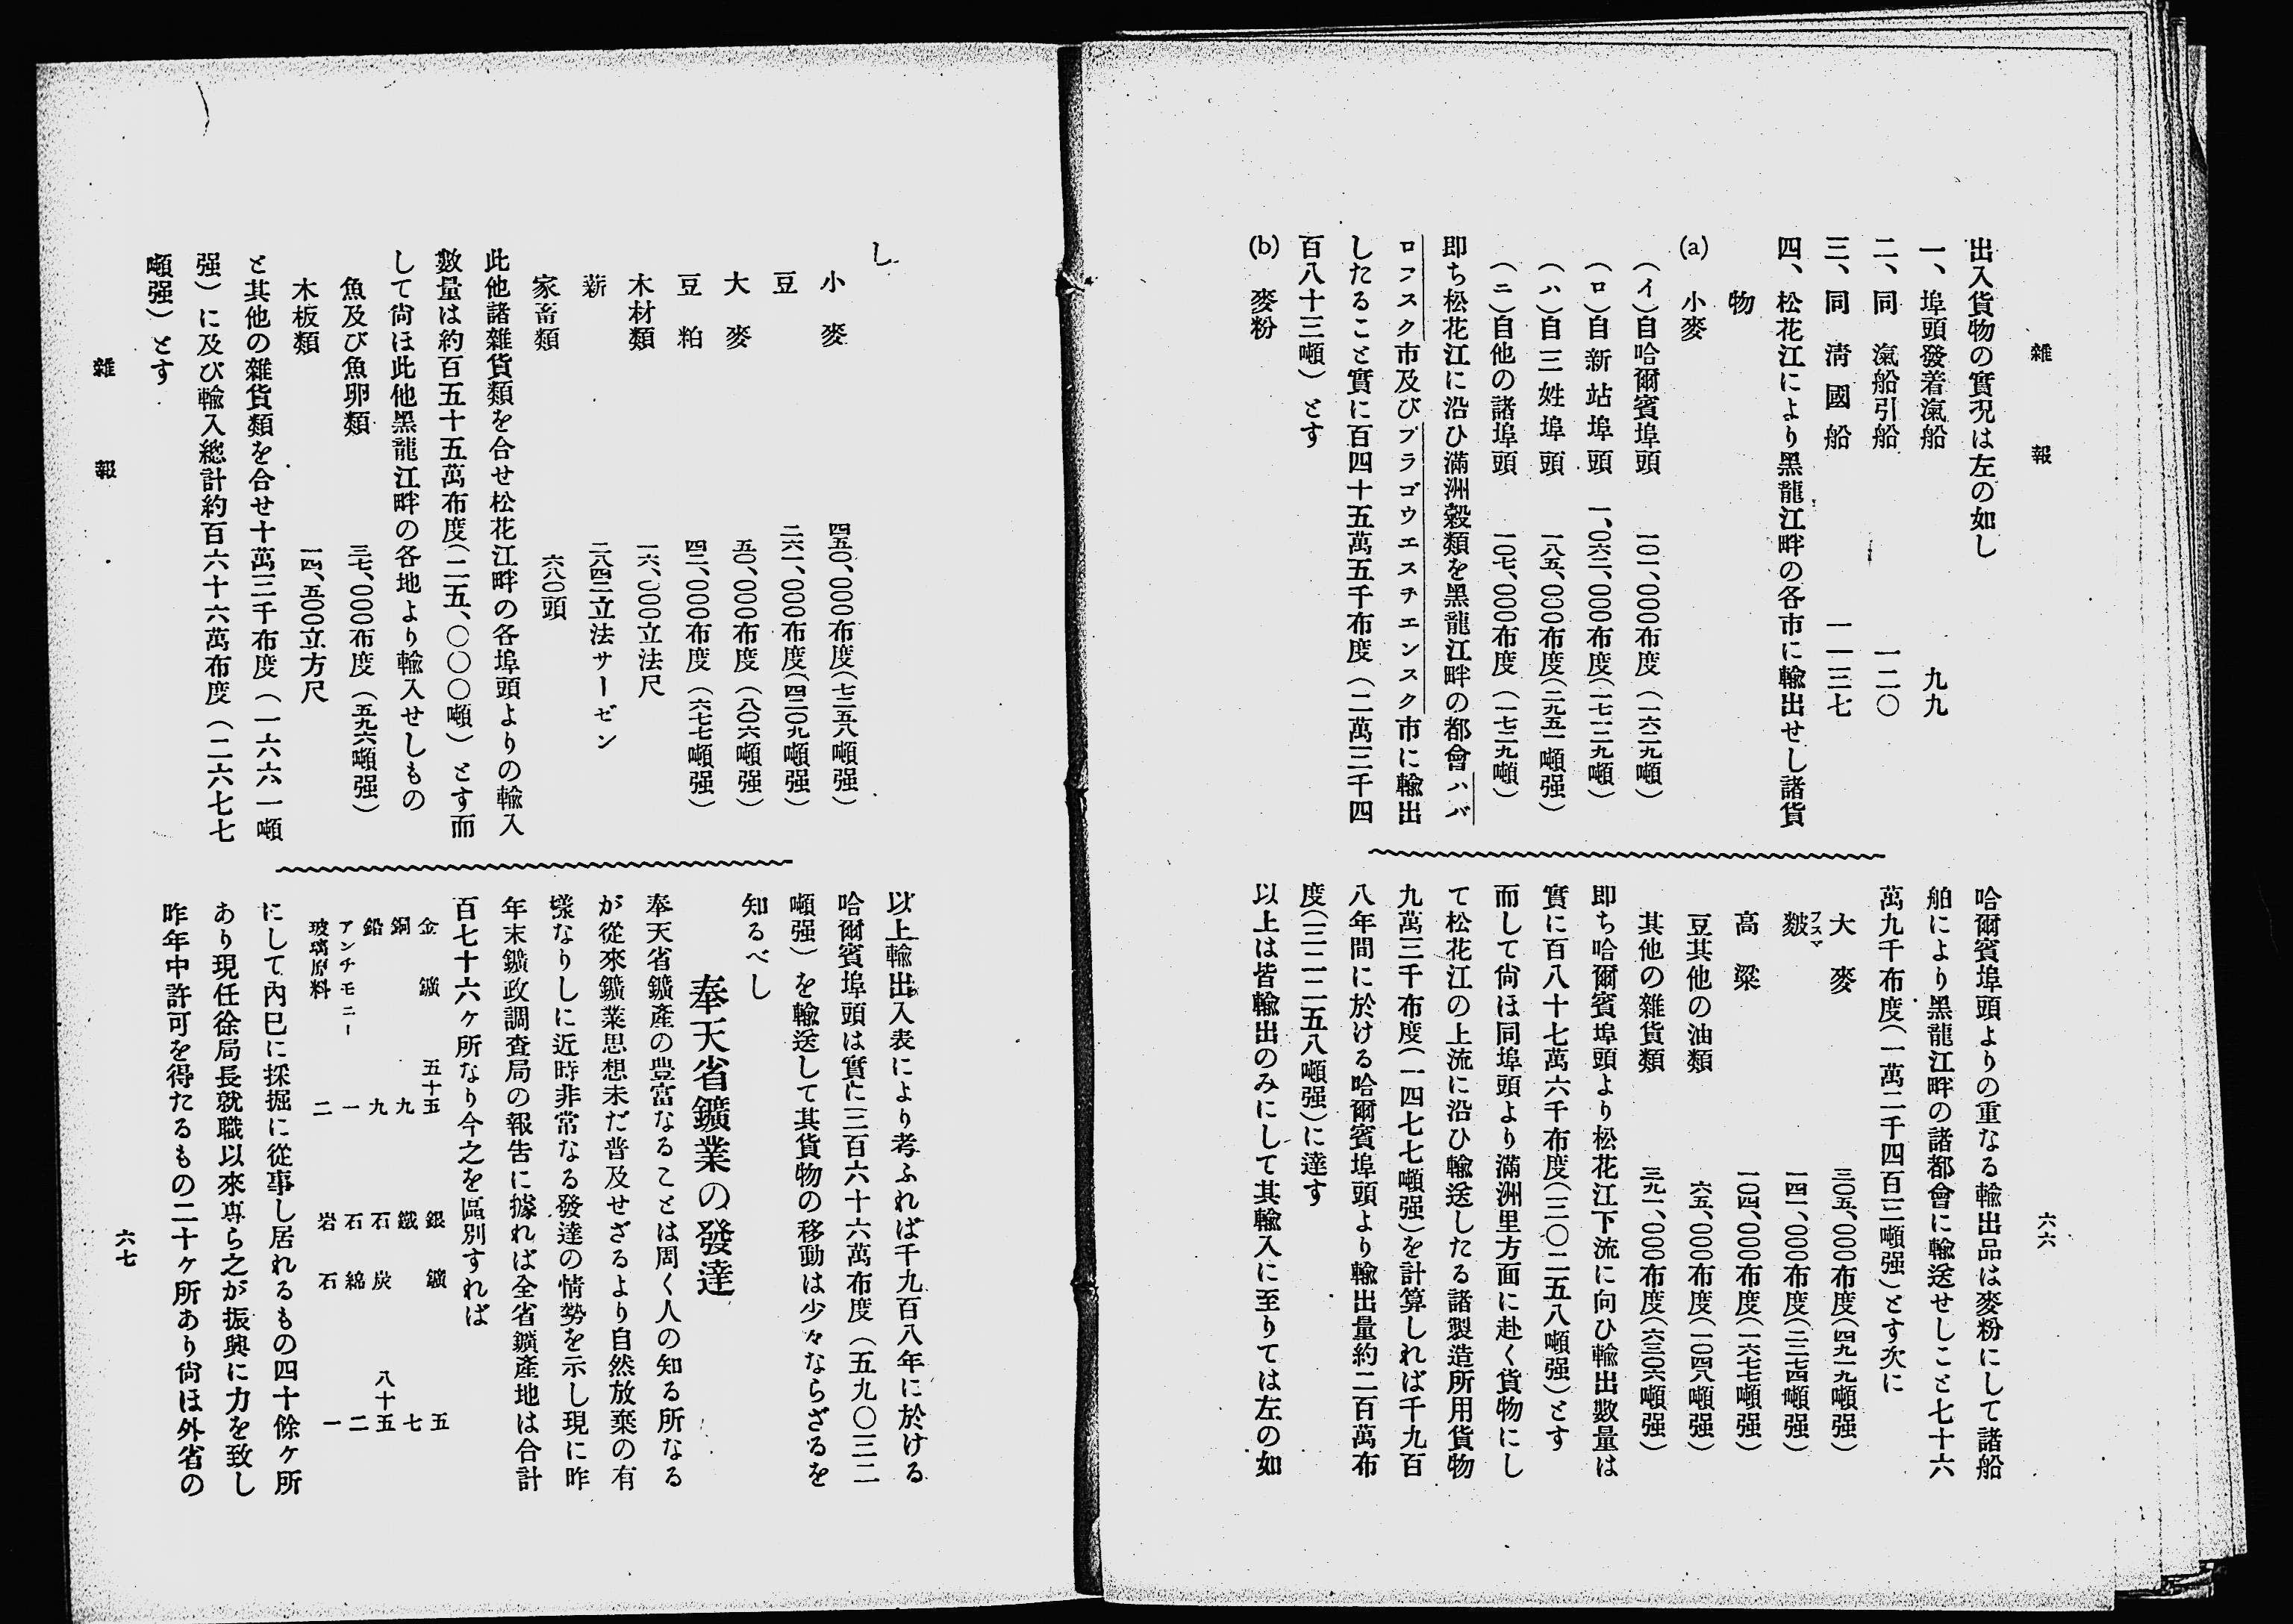 雜報
六六
出入貨物の實況は左の如し
一、埠頭發着滊船　九九
二、同　滊船引船　一二〇
三、同　清國船　一一三七
四、松花江により黑龍江畔の各市に輸出せし諸貨
物
(a)　小麥
（イ）自哈爾賓埠頭　一〇一、〇〇〇布度（一六二九噸）
（ロ）自新站埠頭　一、〇六二、〇〇〇布度（一七二九噸）
（ハ）自三姓埠頭　一八五、〇〇〇布度（二九五一噸强）
（ニ）自他の諸埠頭　一〇七、〇〇〇布度（一七二九噸）
即ち松花江に沿ひ滿洲穀類を黑龍江畔の都會ハバ
ロフスク市及びブラゴウエスチエンスク市に輸出
したること實に百四十五萬五千布度（二萬三千四
百八十三噸）とす
(b)　麥粉
哈爾賓埠頭よりの重なる輸出品は麥粉にして諸船
舶により黑龍江畔の諸都會に輸送せしこと七十六
萬九千布度（一萬二千四百三噸强）とす次に
大麥　三〇五、〇〇〇布度（四九一九噸强）
麬フスマ　一四一、〇〇〇布度（二二七四噸强）
高粱　一〇四、〇〇〇布度（一六七七噸强）
豆其他の油類　六五、〇〇〇布度（一〇四八噸强）
其他の雜貨類　三九一、〇〇〇布度（六三〇六噸强）
即ち哈爾賓埠頭より松花江下流に向ひ輸出數量は
實に百八十七萬六千布度（三〇二五八噸强）とす
而して尙ほ同埠頭より滿洲里方面に赴く貨物にし
て松花江の上流に沿ひ輸送したる諸製造所用貨物
九萬三千布度（一四七七噸强）を計算しれば千九百
八年間に於ける哈爾賓埠頭より輸出量約二百萬布
度（三二二五八噸强）に達す
以上は皆輸出のみにして其輸入に至りては左の如
し
小麥　四五〇、〇〇〇布度（七二五八噸强）
豆　二六一、〇〇〇布度（四二〇九噸强）
大麥　五〇、〇〇〇布度（八〇六噸强）
豆粕　四二、〇〇〇布度（六七七噸强）
木材類　一六、〇〇〇立法尺
薪　二八四二立法サーゼン
家畜類　六八〇頭
此他諸雜貨類を合せ松花江畔の各埠頭よりの輸入
數量は約百五十五萬布度（二五、〇〇〇噸）とす而
して尙ほ此他黑龍江畔の各地より輸入せしもの
魚及び魚卵類　三七、〇〇〇布度（五九六噸强）
木板類　一四、五〇〇立方尺
と其他の雜貨類を合せ十萬三千布度（一六六一噸
强）に及び輸入總計約百六十六萬布度（二六七七
噸强）とす
以上輸出入表により考ふれば千九百八年に於ける
哈爾賓埠頭は實に三百六十六萬布度（五九〇三二
噸强）を輸送して其貨物の移動は少々ならざるを
知るべし
奉天省鑛業の發達
奉天省鑛產の豊富なることは周く人の知る所なる
が從來鑛業思想未だ普及せざるより自然放棄の有
樣なりしに近時非常なる發達の情勢を示し現に昨
年末鑛政調査局の報告に據れば全省鑛產地は合計
百七十六ケ所なり今之を區別すれば
金鑛　五十五　銀鑛　五
銅　九　鐵　七
鉛　九　石炭　八十五
アンチモニー　一　石綿　二
玻璃原料　二　岩石　一
にして內巳に採掘に從事し居れるもの四十餘ケ所
あり現任徐局長就職以來專ら之が振興に力を致し
昨年中許可を得たるもの二十ケ所あり尙ほ外省の
雜報
六七